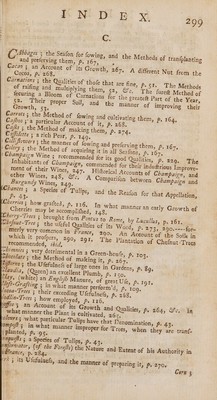 INDEX.
299
C.
Cabbages; the Season for sowing, and the Methods of transplanting
and preserving them, p. 167.
Cacao; an Account of its Growth, 267. A different Nut from the
Cocoa, p. 268.
Carnations; the Qualities of those that are fine, p. 51. The Methods
of raising and multiplying them, 51, &c. The surest Method of
securing a Bloom of Carnations for the greatest Part of the Year,
52. Their proper Soil, and the manner of improving their
Growth, 53.
Carrots; the Method of sowing and cultivating them, p. 164.
a particular Account of it, p. 268.
the Method of making them, p. 274.
a rich Pear, p. 149.
the manner of sowing and preserving them, p. 167.
Celery; the Method of repairing it in all Seasons, p. 167.
Champaign Wine; recommended for its good Qualities, p. 229. The
Inhabitants of Champaign, commended for their industrious Improve-
ment of their Wines, 247. Historical Accounts of Champaign, and
other Wines, 248, &c. A Comparison between Champaign and
Burgundy Wines, 249.
a Species of Tulips, and the Reason for that Appellation,
p. 43.
how grafted, p. 116. In what manner an early Growth of
Cherries may be accomplished, 148.
brought from Pontus to Rome, by Lucullus, p. 161.
the useful Qualities of its Wood, p. 275, 290,
merly very common in France, 290. An Account of the Soils in
which it prospers, 290, 291. The Plantation of Chesnut Trees
recommended, ibid.
very detrimental in a Green-house, p. 105.
the Method of making it, p. 267.
the Usefulness of large ones in Gardens, p. 89.
(Queen) an excellent Plumb, p. 150.
(white) an English Manure, of great Use, p. 191.
in what manner perform'd, p. 109.
their exceeding Usefulness, p. 268.
how employed, p. 126.
an Account of its Growth and Qualities, p. 264, &c. In
what manner the Plant is cultivated, 265.
what particular Tulips have that Denomination, p. 43.
in what manner improper for Trees, when they are trans-
planted, p. 95.
a Species of Tulips, p. 43.
(of the People) the Nature and Extent of his Authority in
p. 284.
its Usefulness, and the manner of preparing it, p. 270.
Corn;